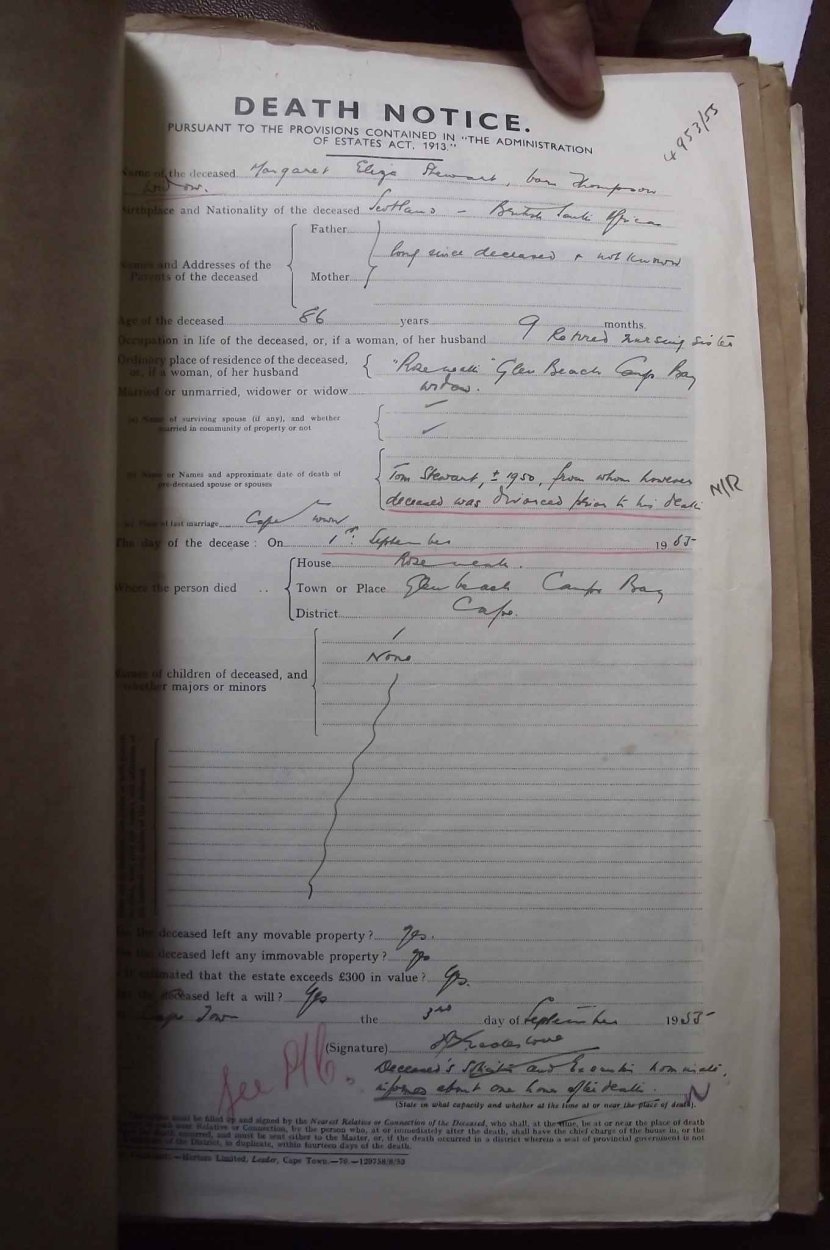 4953/55
DEATH NOTICE.
PURSUANT TO THE PROVISIONS CONTAINED IN "THE ADMINISTRATION
OF ESTATES ACT, 1913."
Name of the deceased Margaret Eliza Stewart, born Thompson
widow.
Birthplace and Nationality of the deceased Scotland – British South African
Father
long since deceased & not known
Names and Addresses of the
Parents of the deceased
Mother
Age of the deceased 86 years 9 months.
Occupation in life of the deceased, or, if a woman, of her husband Retired nursing sister
Ordinary place of residence of the deceased,
or, if a woman, of her husband Glen Beach Camps Bay
Married or unmarried, widower or widow widow.
(a) Name of surviving spouse (if any), and whether
married in community of property or not
(b) Name or Names and approximate date of death of
pre-deceased spouse or spouses
Tom Stewart, ± 1950, from whom however
deceased was divorced prior to his death
N/R
(c) Place of last marriage Cape Town
The day of the decease: On 1st September 1955
House
Where the person died .. Town or Place Glen beach Camps Bay
District Cape.
None
Names of children of deceased, and
whether majors or minors
Has the deceased left any movable property? Yes.
Has the deceased left any immovable property? Yes
Is it estimated that the estate exceeds £300 in value? Yes.
Has the deceased left a will? Yes
Cape Town the 3rd day of September 1955
(Signature)
Deceased's and Executor nominate,
about one hour after death.
See
(State in what capacity and whether at the time at or near the place of death).
must be filled up and signed by the Nearest Relative or Connection of the Deceased, who shall, at the time, be at or near the place of death
Relative or Connection, by the person who, at or immediately after the death, shall have the chief charge of the house in, or the
occurred, and must be sent either to the Master, or, if the death occurred in a district wherein a seat of provincial government is not
of the District, in duplicate, within fourteen days of the death.
Limited, Leader, Cape Town.—70.—129758/8/53